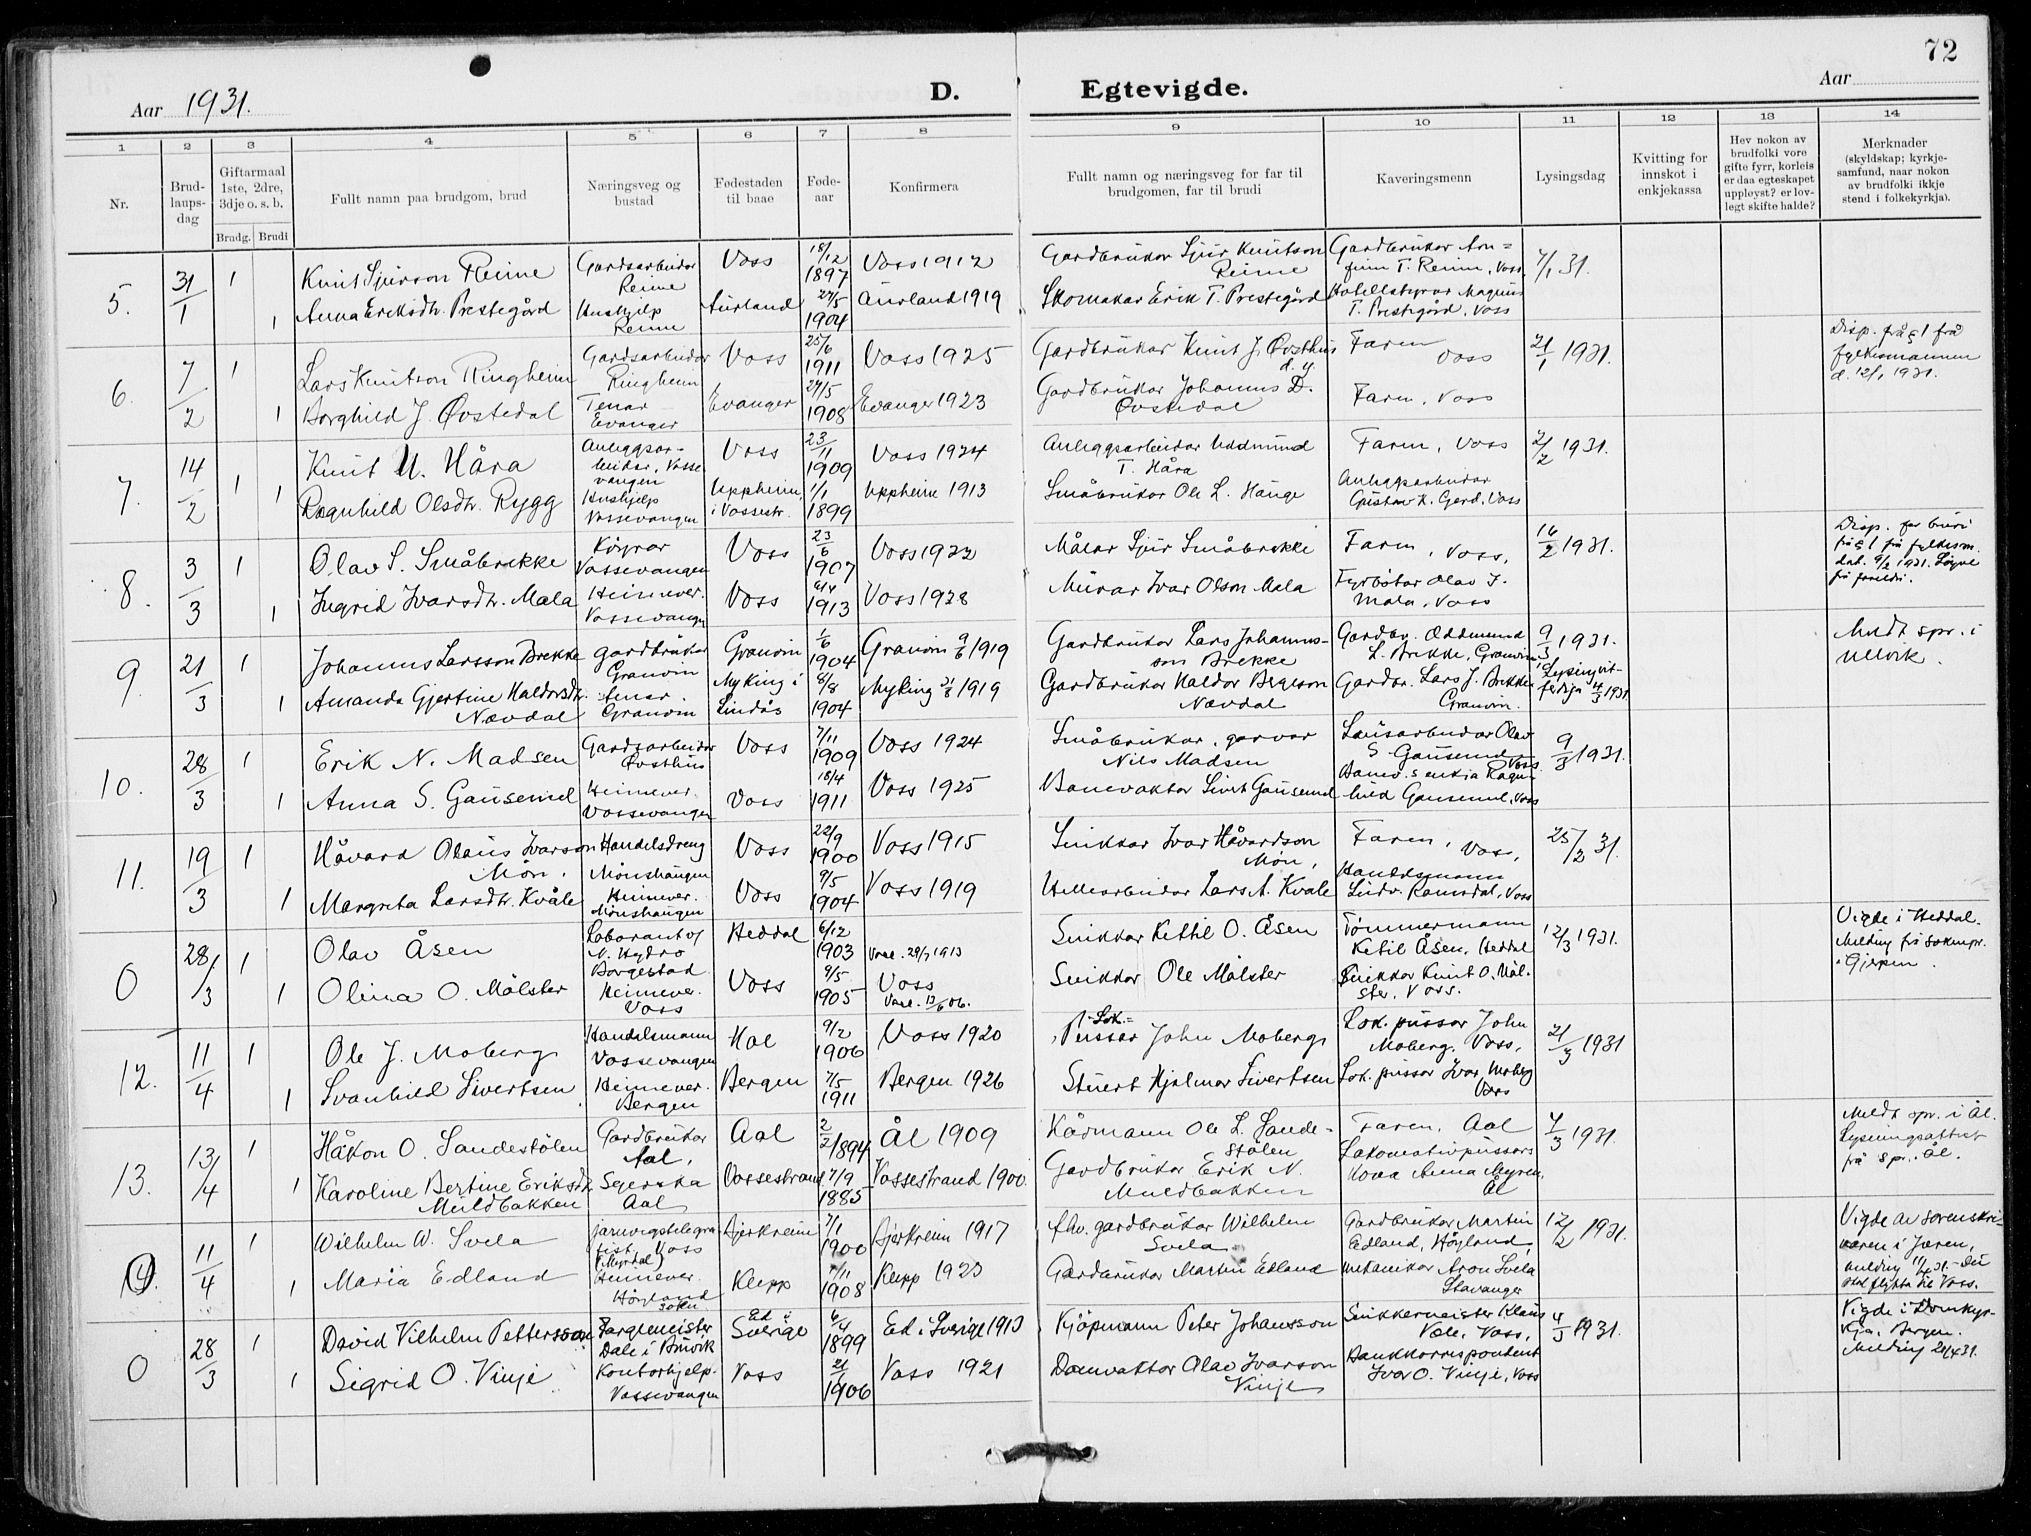 72
Aar 1931.
D. Egtevigde.
Aar
1 2 3 4 5 6 7 8 9 10 11 12 13 14
Nr.
Brud-
laups-
dag
Giftarmaal
1ste, 2dre,
3dje o. s. b.
Brudg. Brudi
Fullt namn paa brudgom, brud
Næringsveg og
bustad
Fødestaden
til baae
Føde-
aar
Konfirmera
Fullt namn og næringsveg for far til
brudgomen, far til brudi
Kaveringsmenn
Lysingsdag
Kvitting for
innskot i
enkjekassa
Hev nokon av
brudfolki vore
gifte fyrr, korleis
er daa egteskapet
uppløyst? er lov-
legt skifte halde?
Merknader
(skyldskap; kyrkje-
samfund, naar nokon
av brudfolki ikkje
stend i folkekyrkja).
5. 31/1 1
Knut Sjurson Reime
Gardsarbeidar
Reime
Voss
18/12
1897
Voss 1912
Gardbrukar Sjur Knutson
Reime
Gardbrukar Arn=
finn T. Reime, Voss
7/1 31.
1
Anna Eriksdtr. Prestegård
Hushjelp
Reime
Aurland
1904
Aurland 1919
Skomakar Erik T. Prestegård
Hotellstyrar Magnus
T. Prestegård, Voss
6. 7/2 1
Lars Knutson Ringheim
Gardsarbeidar
Ringheim
Voss
25/6
1911
Voss 1925
Gardbrukar Knut J. Øvsthus
d. y.
Faren
Voss
21/1 1931.
Disp. frå § 1 frå
fylkesmannen
d. 12/1 1931.
1
Borghild J. Øvstedal
Tenar
Evanger
Evanger
27/5
1908
Evanger 1923
Gardbrukar Johannes D.
Øvstedal
Faren, Voss
7. 14/2 1
Knut U. Håra
Anleggsar-
beidar, Vosse
vangen
Voss
23/11
1909
Voss 1924
Anleggsarbeidar Uddmund
T. Håra
Faren, Voss
2/2 1931.
1
Ragnhild Olsdtr. Rygg
Hushjelp
Vossevangen
Uppheim,
i Vossestr.
1/1
1899
Uppheim 1913
Småbrukar Ole L. Hauge
Anleggsarbeidar
Gustav K. Gjerd, Voss
8. 3/3 1
Olav S. Småbrekke
Køyrar
Vossevangen
Voss
23/6
1907
Voss 1922
Målar Sjur Småbrekke
Faren, Voss,
16/2 1931.
Disp. for brudi
frå § 1 frå fylkesm.
dat. 9/2 1931. Løyve
frå foreldri.
1
Ingrid Ivarsdtr. Mala
Heimever.
Vossevangen
Voss
1913
Voss 1928
Murar Ivar Olson Mala
Fyrbøtar Olav I.
Mala, Voss
9 21/3 1
Johannes Larsson Brekke
gardbrukar
Granvin
Granvin
1/6
1904
Granvin 9/6 1919
Gardbrukar Lars Johannes-
son Brekke
Gardbr. Oddmund
L. Brekke, Granvin
9/3 1931.
Meldt spr. i
Ulvik.
1
Amanda Gjertine Haldorsdtr.
Nævdal
tenar.
Granvin
Myking i
Lindås
8/8
1904
Myking 31/8 1919
Gardbrukar Haldor Bergeson
Nævdal
Gardbr. Lars J. Brekke
Granvin.
1931
10. 28/3 1
Erik N. Madsen
Gardsarbeidar
Øvsthus
Voss
7/11
1909
Voss 1924
Småbrukar, garvar
Nils Madsen
Lausarbeidar Olav
S. Gausemel
Voss
9/3 1931.
1
Anna S. Gausemel
Heimever.
Vossevangen
Voss
18/4
1911
Voss 1925
Banevaktar Sivert Gausemel
Banev.s enkja Ragn-
hild Gausemel, Voss
11. 19/3 1
Håvard Olaus Ivarson
Møn.
Handelsdreng
Mønshaugen
Voss
22/9
1900
Voss 1915
Snikkar Ivar Håvardson
Møn,
Faren, Voss,
25/2 31.
1
Margreta Larsdtr. Kvåle
Heimever.
Mønshaugen
Voss
9/5
1904
Voss 1919
Hellearbeidar Lars A. Kvåle
Handelsmann
Ludv. Ramsdal, Voss
0 28/3 1
Olav Åsen
Laborant v/
N. Hydro
Borgestad
Heddal
6/12
1903
Snikkar Kettil O. Åsen
Tømmermann
Ketil Åsen, Heddal
12/3 1931.
Vigde i Heddal.
Melding frå soknepr.
i Gjerpen.
1
Olina O. Mølster
Heimever.
Voss
Voss
9/5
1905
Voss
Snikkar Ole Mølster
Snikkar Knut O. Møl-
ster, Voss.
12. 11/4 1
Ole J. Moberg
Handelsmann
Vossevangen
Hol
9/2
1906
Voss 1920
Lok.=
Pussar John Moberg
Lok. pussar John
Moberg. Voss,
21/3 1931
1
Svanhild Sivertsen
Heimever.
Bergen
Bergen
7/5
1911
Bergen 1926
Stuert Hjalmar Sivertsen
Lok. pussar Ivar Moberg
Voss
13. 13/4 1
Håkon O. Sandestølen
Gardbrukar
Aal,
Aal
2/2 1894
Ål 1909
Kårmann Ole L. Sande-
stølen
Faren, Aal
7/3 1931.
Meldt spr. i Ål.
Lysningsattest
frå spr. i Ål.
1
Karoline Bertine Eriksdtr.
Muldbakken
Aal
Vossestrand
7/9
1885
Vossestrand 1900.
Gardbrukar Erik N.
Muldbakken
Lokomotivpussars
kona Anna Myren,
Ål
14. 11/4 1
Wilhelm W. Svela
jarnvegstelegra
fist, Voss
(Myrdal)
Bjerkreim
7/1
1900
Bjerkreim 1917
fhv. gardbrukar Wilhelm
Svela
Gardbrukar Martin
Edland, Høyland,
12/2 1931.
Vigde av sorenskri-
varen i Jæren,
melding 11/4 31. - Dei
skal flytta til Voss.
1
Maria Edland
Heimever.
Høyland
sokn
Klepp
1908
Klepp 1923
Gardbrukar Martin Edland
Mekanikar Aron Svela
Stavanger
0 28/3 1
David Vilhelm Pettersson
Fargemeister
Dale i Bruvik
Ed i
Sverige
6/4
1899
Ed i Sverige 1913
Kjøpmann Peter Johansson
Snikkermeister Klaus
Vole, Voss,
4/3 1931.
Vigde i Domkyr-
kja, Bergen.
Melding
1
Sigrid O. Vinje
Kontorhjelp.
Vossevangen
Voss
1906
Voss 1921
Domvaktar Olav Ivarson
Vinje
Bankkorrespondent
Ivar O. Vinje, Voss